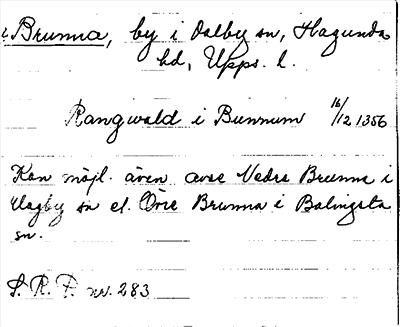 Brunna, by i Dalby sn, Hagunda
hd, Upps. l.
Rangwald i Bunnum 16/12 1356
Kan möjl. även avse Nedre Brunna i
Vagby sn el. Övre Brunna i Balingsta
sn.
S. R. P. nr. 283